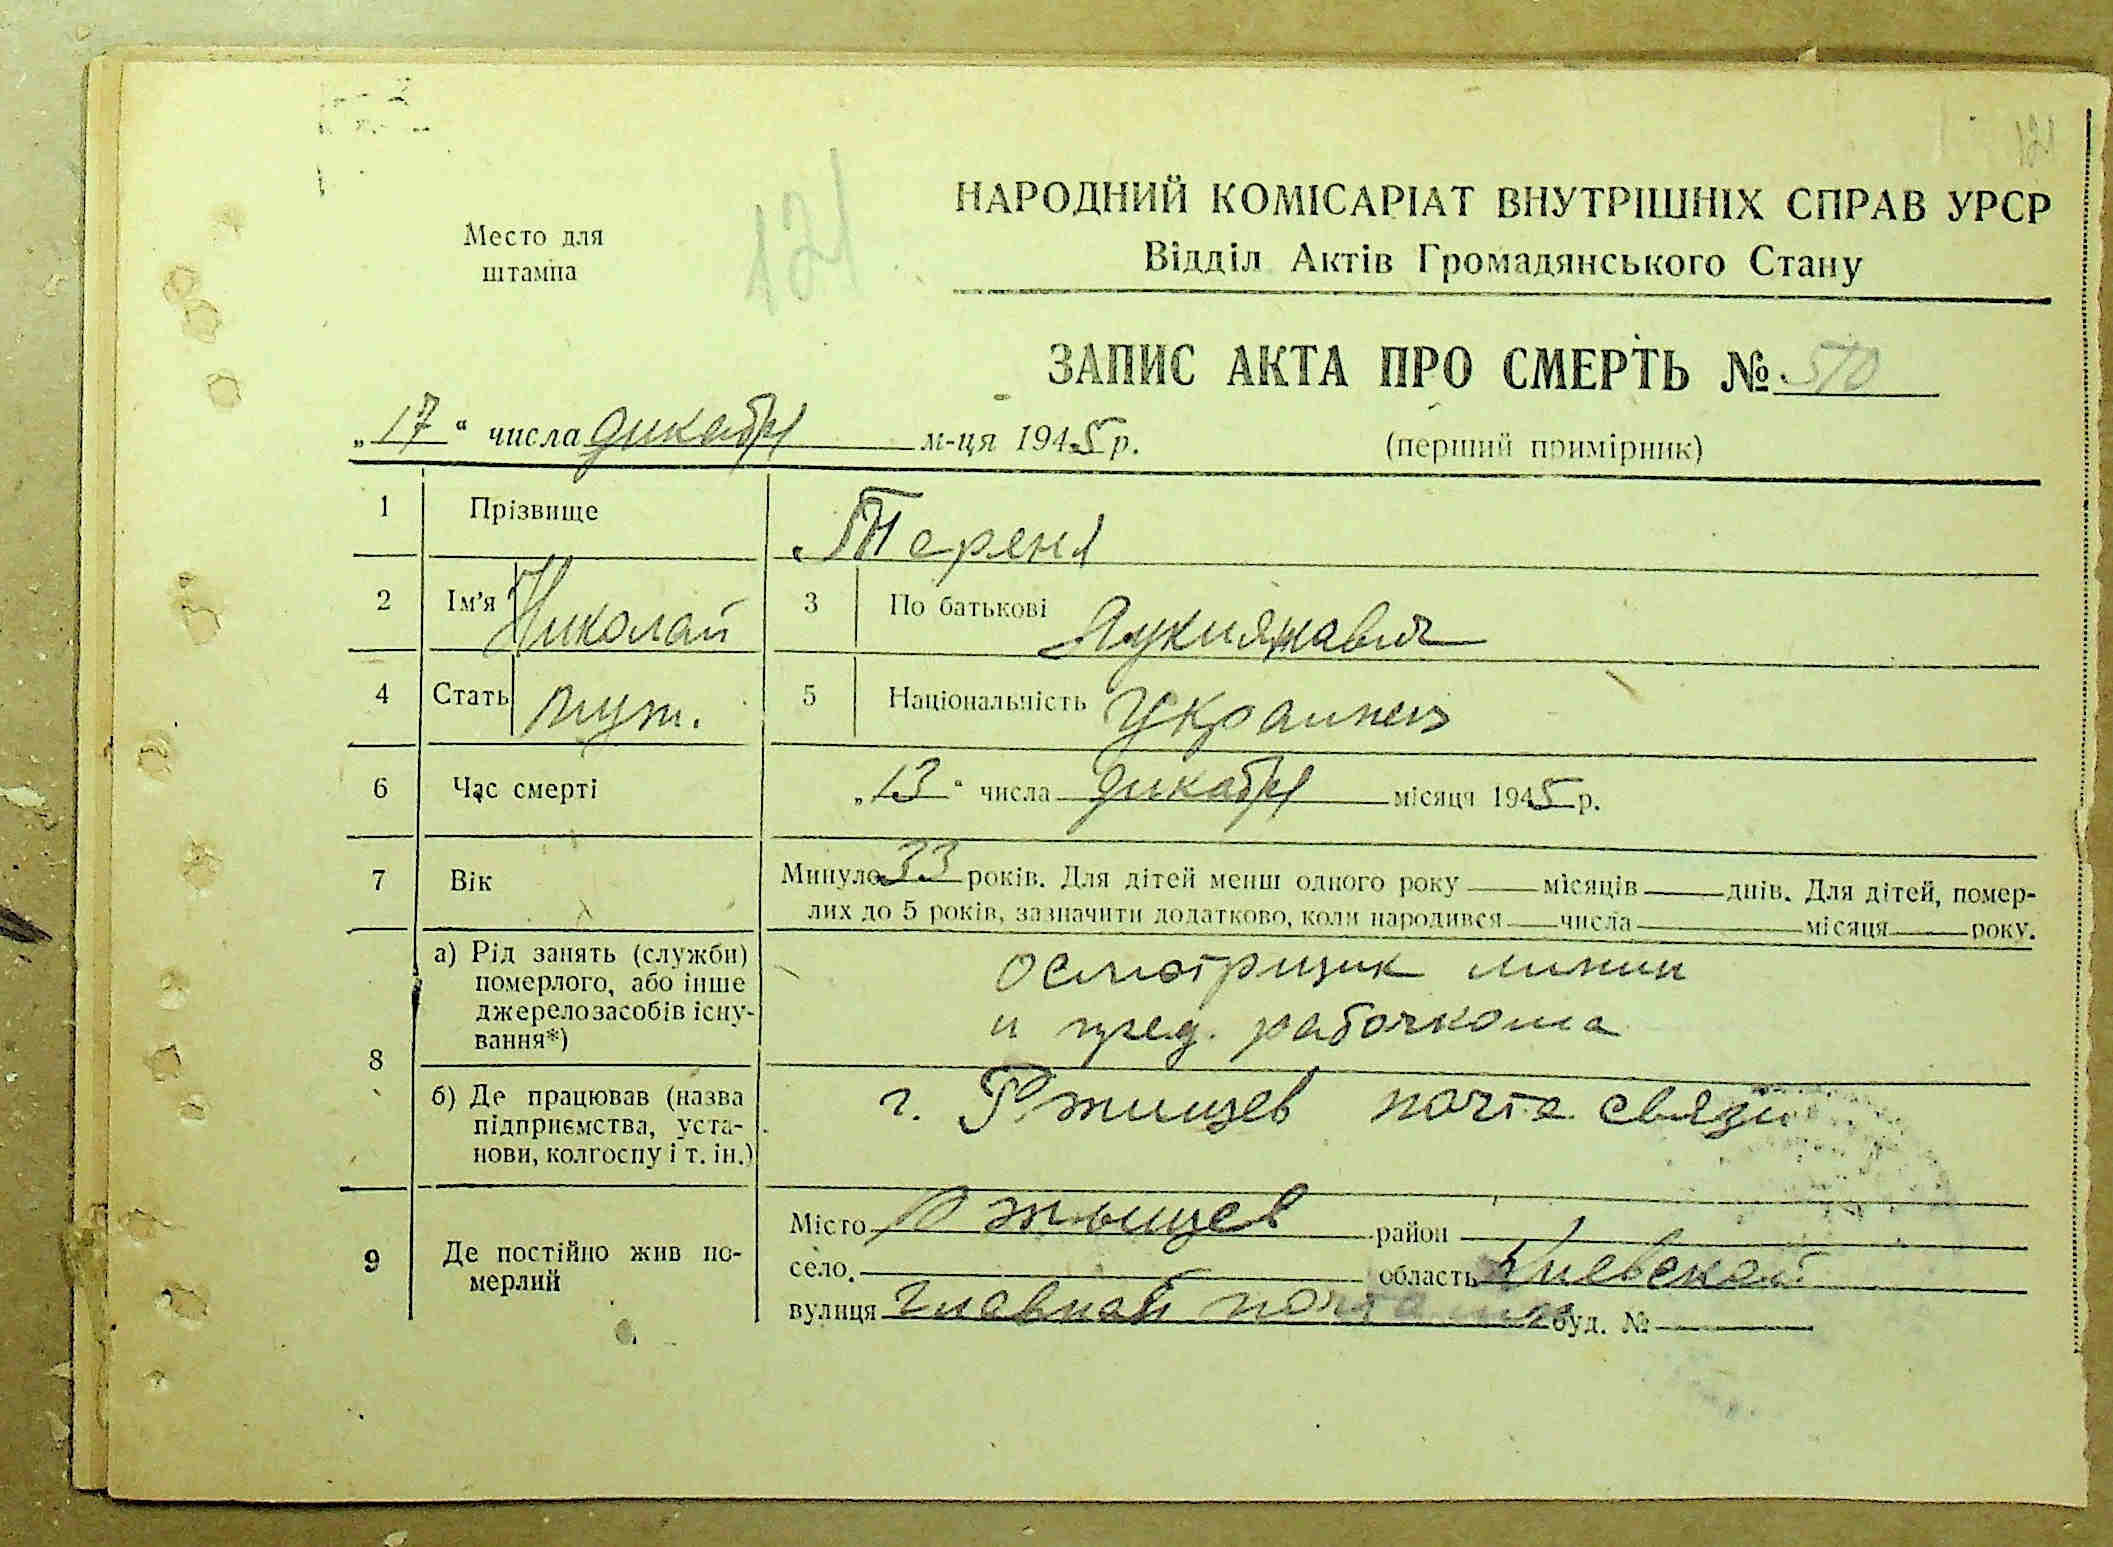 121
НАРОДНИЙ КОМІСАРІАТ ВНУТРІШНІХ СПРАВ УРСР
Відділ Актів Громадянського Стану
Место для
штампа
121
ЗАПИС АКТА ПРО СМЕРТЬ № 510
„17“ числа декабря м-ця 1945 р.
(перший примірник)
1 Прізвище Тереня
2 Ім'я Николай 3 По батькові Лукиянавич
4 Стать муж. 5 Національність Украинец
6 Час смерті „13“ числа декабря місяця 1945 р.
7 Вік Минуло 33 років. Для дітей менш одного року місяців днів. Для дітей, помер-
лих до 5 років, зазначити додатково, коли народився числа місяця року.
8 а) Рід занять (служби)
померлого, або інше
джерело засобів існу-
вання*)
осмотрщик линии
и пред. рабочкома
б) Де працював (назва
підприємства, уста-
нови, колгоспу і т. ін.)
г. Ржищев почта связи
9 Де постійно жив по-
мерлий
Місто Ржыщев район
село область Киевской
вулиця главная почта буд. №